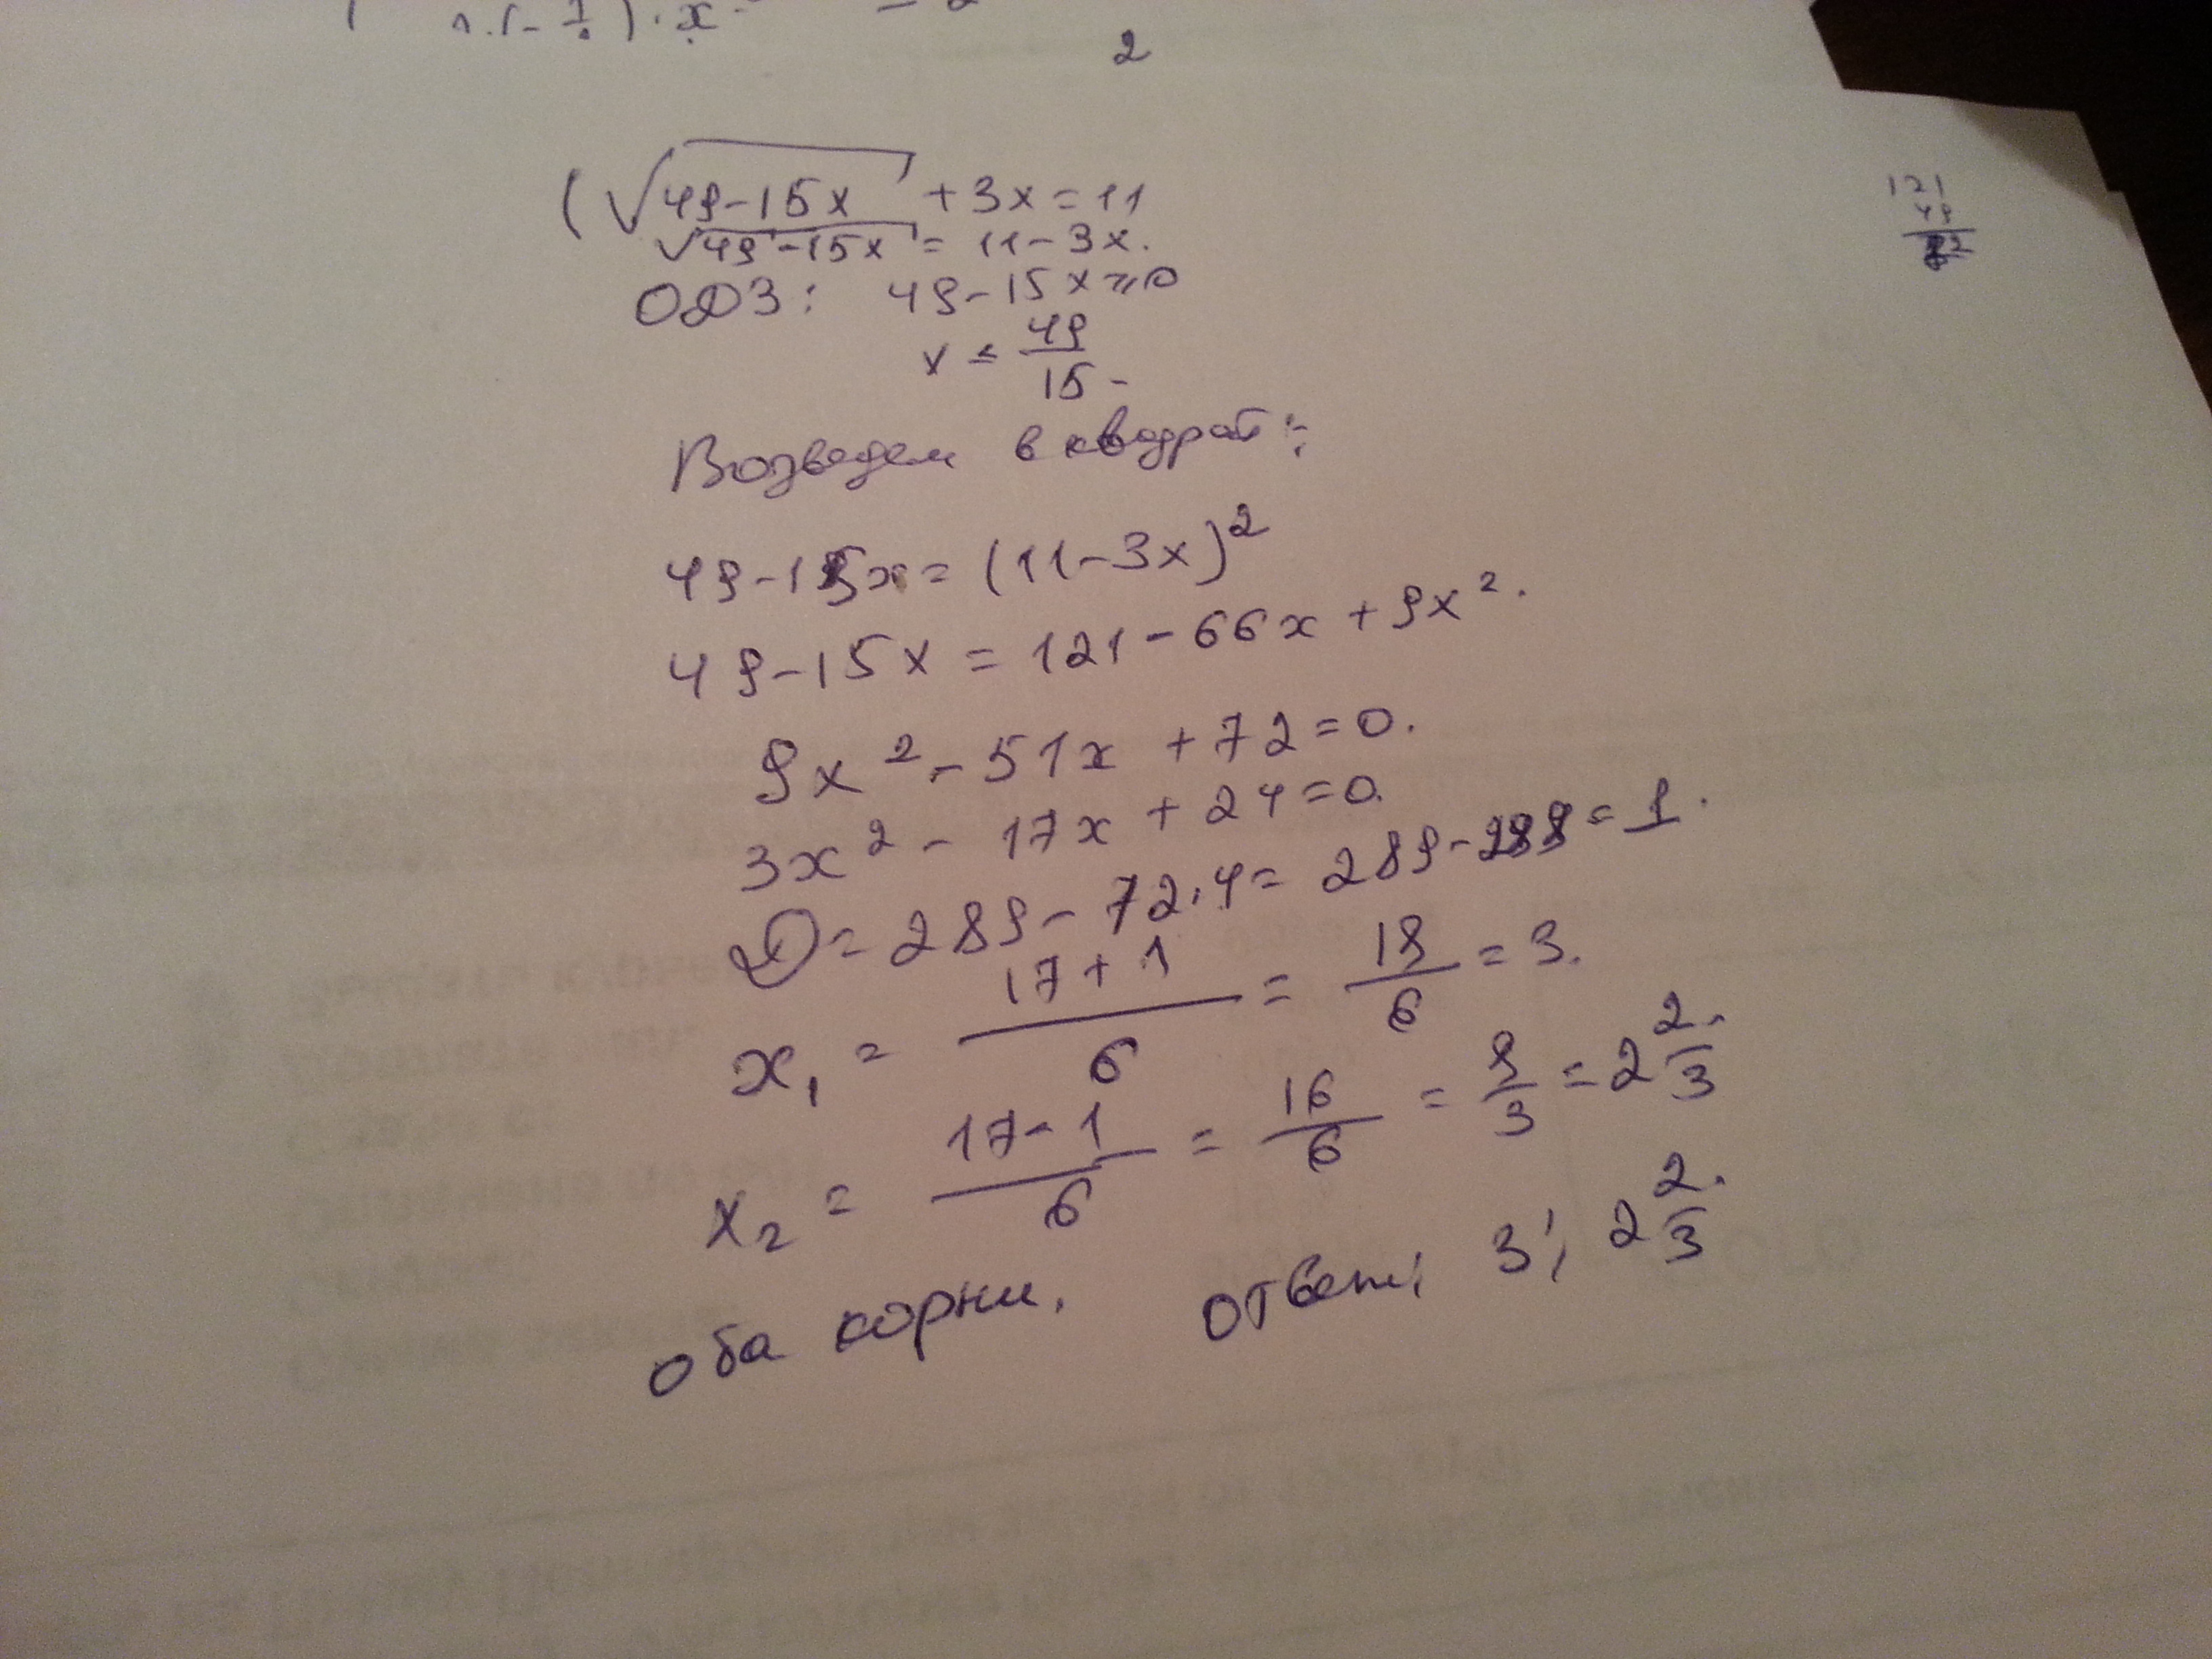 2
(√49-15x + 3x = 11
√49-15x = 11-3x.
ОДЗ: 49-15x ≥ 0
x ≤ 49/15
Возведем в квадрат:
49-15x = (11-3x)²
49-15x = 121-66x+9x².
9x²-51x+72=0.
3x²-17x+24=0.
D=289-72·4=289-288=1.
x₁ = (17+1)/6 = 18/6 = 3.
x₂ = (17-1)/6 = 16/6 = 8/3 = 2 2/3.
оба корни. ответ: 3; 2 2/3.
121